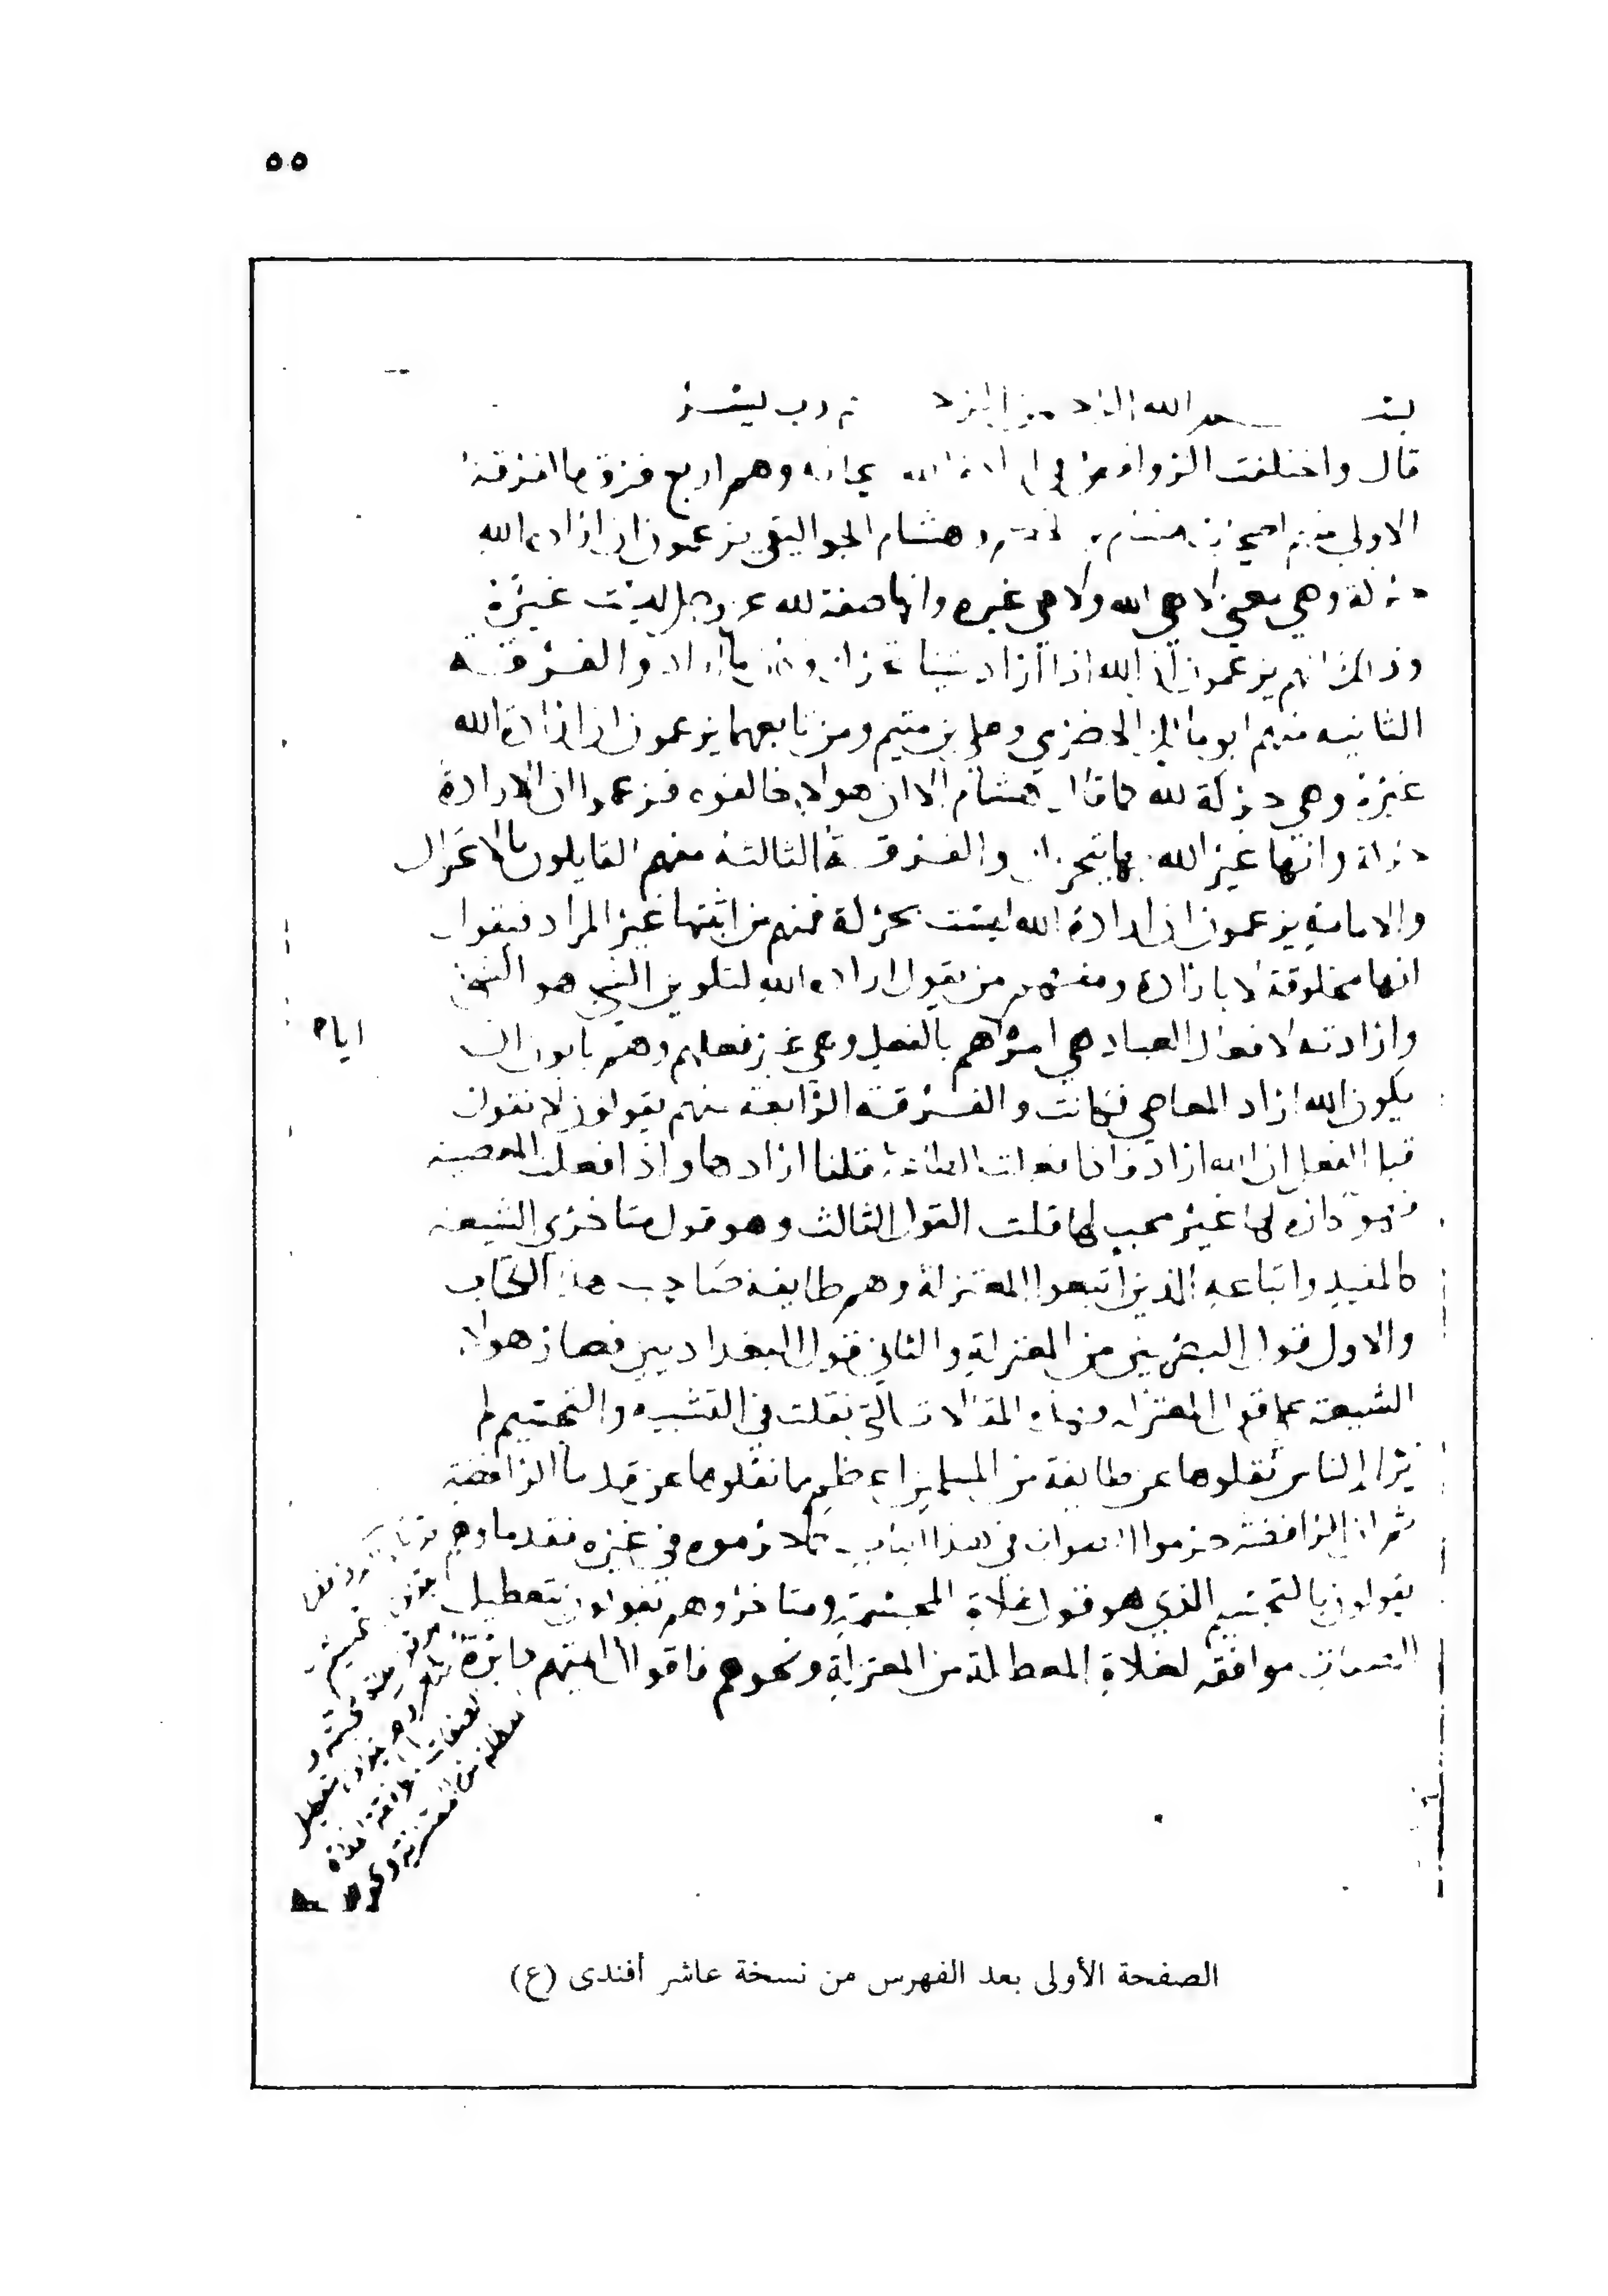 ٥٥
بسم الله الرحمن الرحيم رب يسر
قال واختلفت الروافض في ارادة الله سبحانه وهم اربع فرق فالفرقة
الاولى منهم اصحاب هشام بن الحكم وهشام الجواليقي يزعمون ان ارادة الله
حركة وهي معنى لا هي الله ولا هي غيره وانها صفة لله عز وجل ليست غيره
وذلك انهم يزعمون ان الله اذا اراد شيئا تحرك فكان ما اراد والفرقة
الثانيه منهم ابو مالك الحضرمي وعلي بن متيم ومن تابعهما يزعمون ان ارادة الله
غيره وهي حركة لله كما قال هشام الا ان هولاء خالفوه فزعموا ان الارادة
حركة وانها غير الله بها يتحرك والفرقة الثالثة منهم القايلون بالاعتزال
والامامة يزعمون ان ارادة الله ليست بحركة فمنهم من اثبتها غير المراد فيقول
انها مخلوقة لا بارادة ومنهم من يقول ارادة الله لتكوين الشي هو الشي
وارادته لافعال العباد هي امره اياهم بالفعل وهي غير فعلهم وهم يابون ان
يكون الله اراد المعاصي فكانت والفرقه الرابعة منهم يقولون لا نقول
قبل الفعل ان الله اراد فاذا فعلت الطاعة قلنا ارادها واذا فعلت المعصية
فهو كاره لها غير محب لها قلت القول الثالث وهو قول متاخري الشيعة
كالمفيد واتباعه الذين اتبعوا المعتزلة وهم طايفة صاحب هذا الكتاب
والاول قول البصريين من المعتزلة والثاني قول البغداديين فصار هولاء
الشيعة على قول المعتزلة وهذه المقالات التي نقلت في التشبيه والتجسيم لم
نر الناس نقلوها عن طايفة من المسلمين اعظم مما نقلوها عن قدماء الرافضة
ثم ان الرافضة حرموا الصواب في هذا الباب كما حرموه في غيره فقدماوهم
يقولون بالتجسيم الذي هو قول غلاة المجسمة ومتاخروهم يقولون بتعطيل
الصفات موافقة لغلاة المعطلة من المعتزلة ونحوهم فاقوال ايمتهم دايرة
الصفحة الأولى بعد الفهرس من نسخة عاشر أفندى (ع)